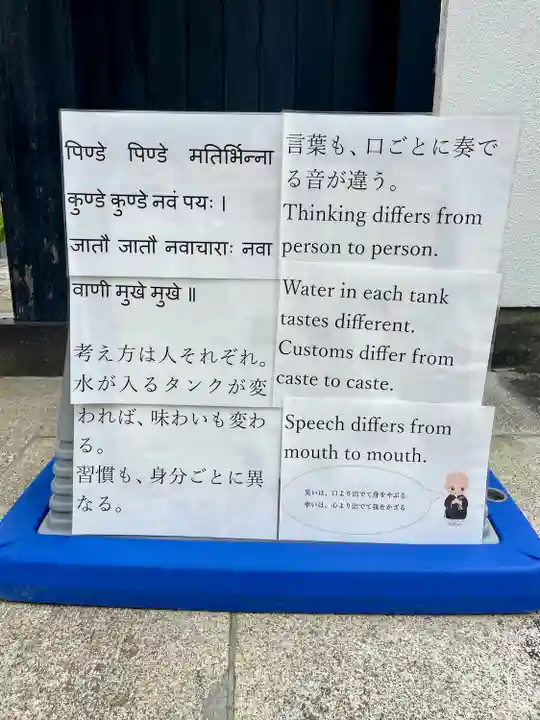 पिण्डे पिण्डे मतिर्भिन्ना
कुण्डे कुण्डे नवं पयः ।
जातौ जातौ नवाचाराः नवा
वाणी मुखे मुखे ॥
考え方は人それぞれ。
水が入るタンクが変
われば、味わいも変わ
る。
習慣も、身分ごとに異
なる。
言葉も、口ごとに奏で
る音が違う。
Thinking differs from
person to person.
Water in each tank
tastes different.
Customs differ from
caste to caste.
Speech differs from
mouth to mouth.
災いは、口より出でて身をやぶる
幸いは、心より出でて我をかざる